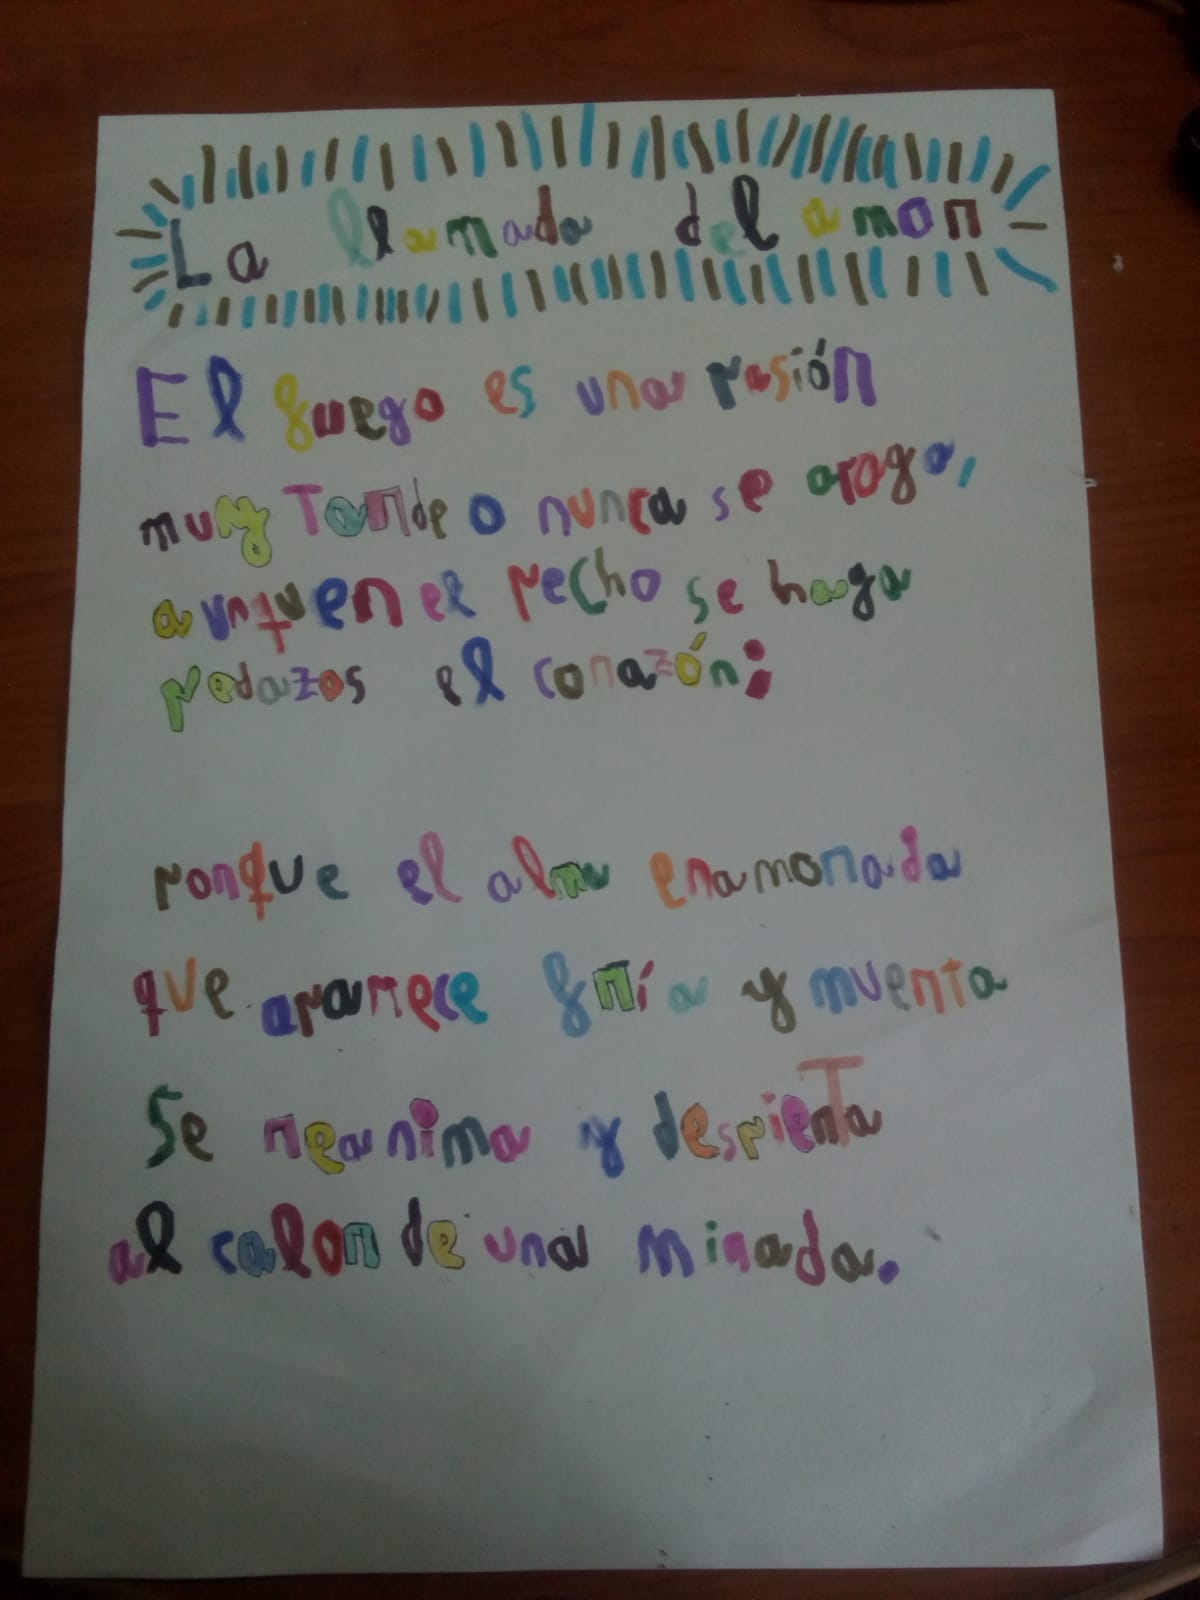 La llamada del amor
El fuego es una pasión
muy tarde o nunca se apaga,
aunquen el pecho se haga
pedazos el corazón;
porque el alma enamorada
que aparece fría y muerta
Se reanima y despierta
al calor de una mirada.